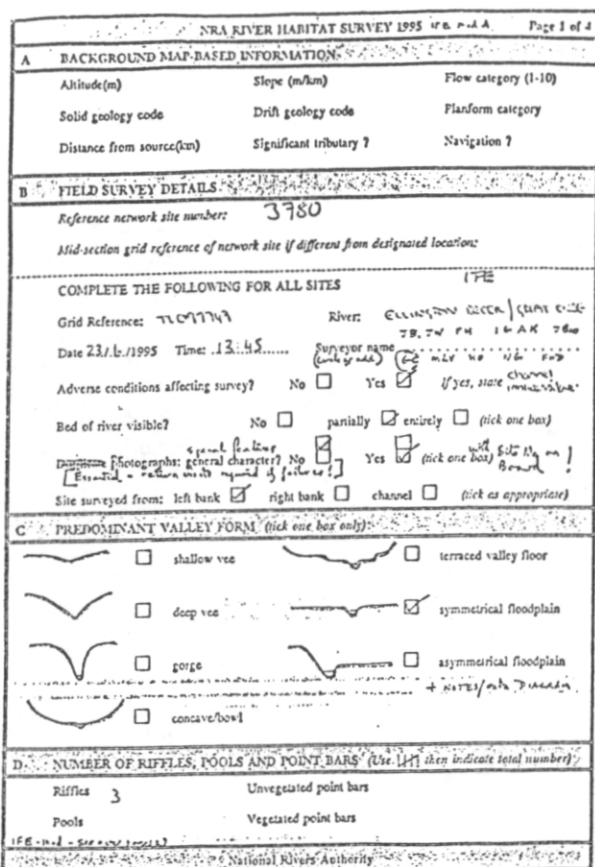 NRA RIVER HABITAT SURVEY 1995 IFE Page 1 of
A BACKGROUND MAP-BASED INFORMATION
Altitude(m) Slope (m/km) Flow category (1-10)
Solid geology code Drift geology code Planform category
Distance from source(km) Significant tributary ? Navigation ?
B FIELD SURVEY DETAILS
Reference network site number: 3780
Mid-section grid reference of network site if different from designated location:
IFE
COMPLETE THE FOLLOWING FOR ALL SITES
Grid Reference: River: ELLINGTON
Date 23/6/1995 Time: 13:45 Surveyor name
Adverse conditions affecting survey? No Yes If yes, state channel
Bed of river visible? No partially entirely (tick one box)
special features
Photographs: general character? No Yes (tick one box) with Site No on Board!
[Essential - return visit required if failure!]
Site surveyed from: left bank right bank channel (tick as appropriate)
C PREDOMINANT VALLEY FORM (tick one box only)
shallow vee terraced valley floor
deep vee symmetrical floodplain
gorge asymmetrical floodplain
+ NOTES/ DIAGRAM
concave/bowl
D NUMBER OF RIFFLES, POOLS AND POINT BARS (Use then indicate total number)
Riffles 3 Unvegetated point bars
Pools Vegetated point bars
National Rivers Authority